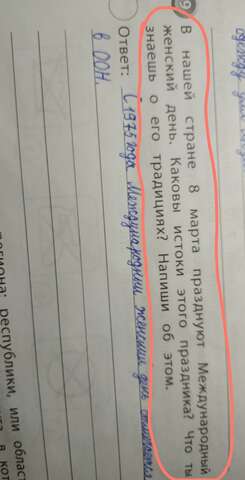 9
В нашей стране 8 марта празднуют Международный
женский день. Каковы истоки этого праздника? Что ты
знаешь о его традициях? Напиши об этом.
Ответ: С 1975 года Международный женский день отмечается
в ООН.
региона: республики, или облас